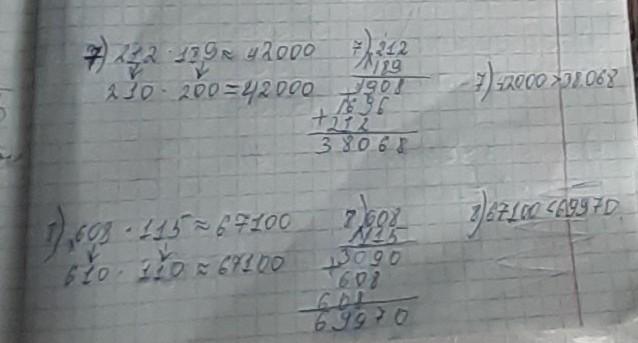 7) 212 · 189 ≈ 42000
210 · 200 = 42000
7) 212
189
1908
+ 1696
+ 212
38068
7) 42000 > 38068
8) 608 · 115 ≈ 67100
610 · 110 ≈ 67100
8) 608
115
+ 3090
608
608
69970
8) 67100 < 69970